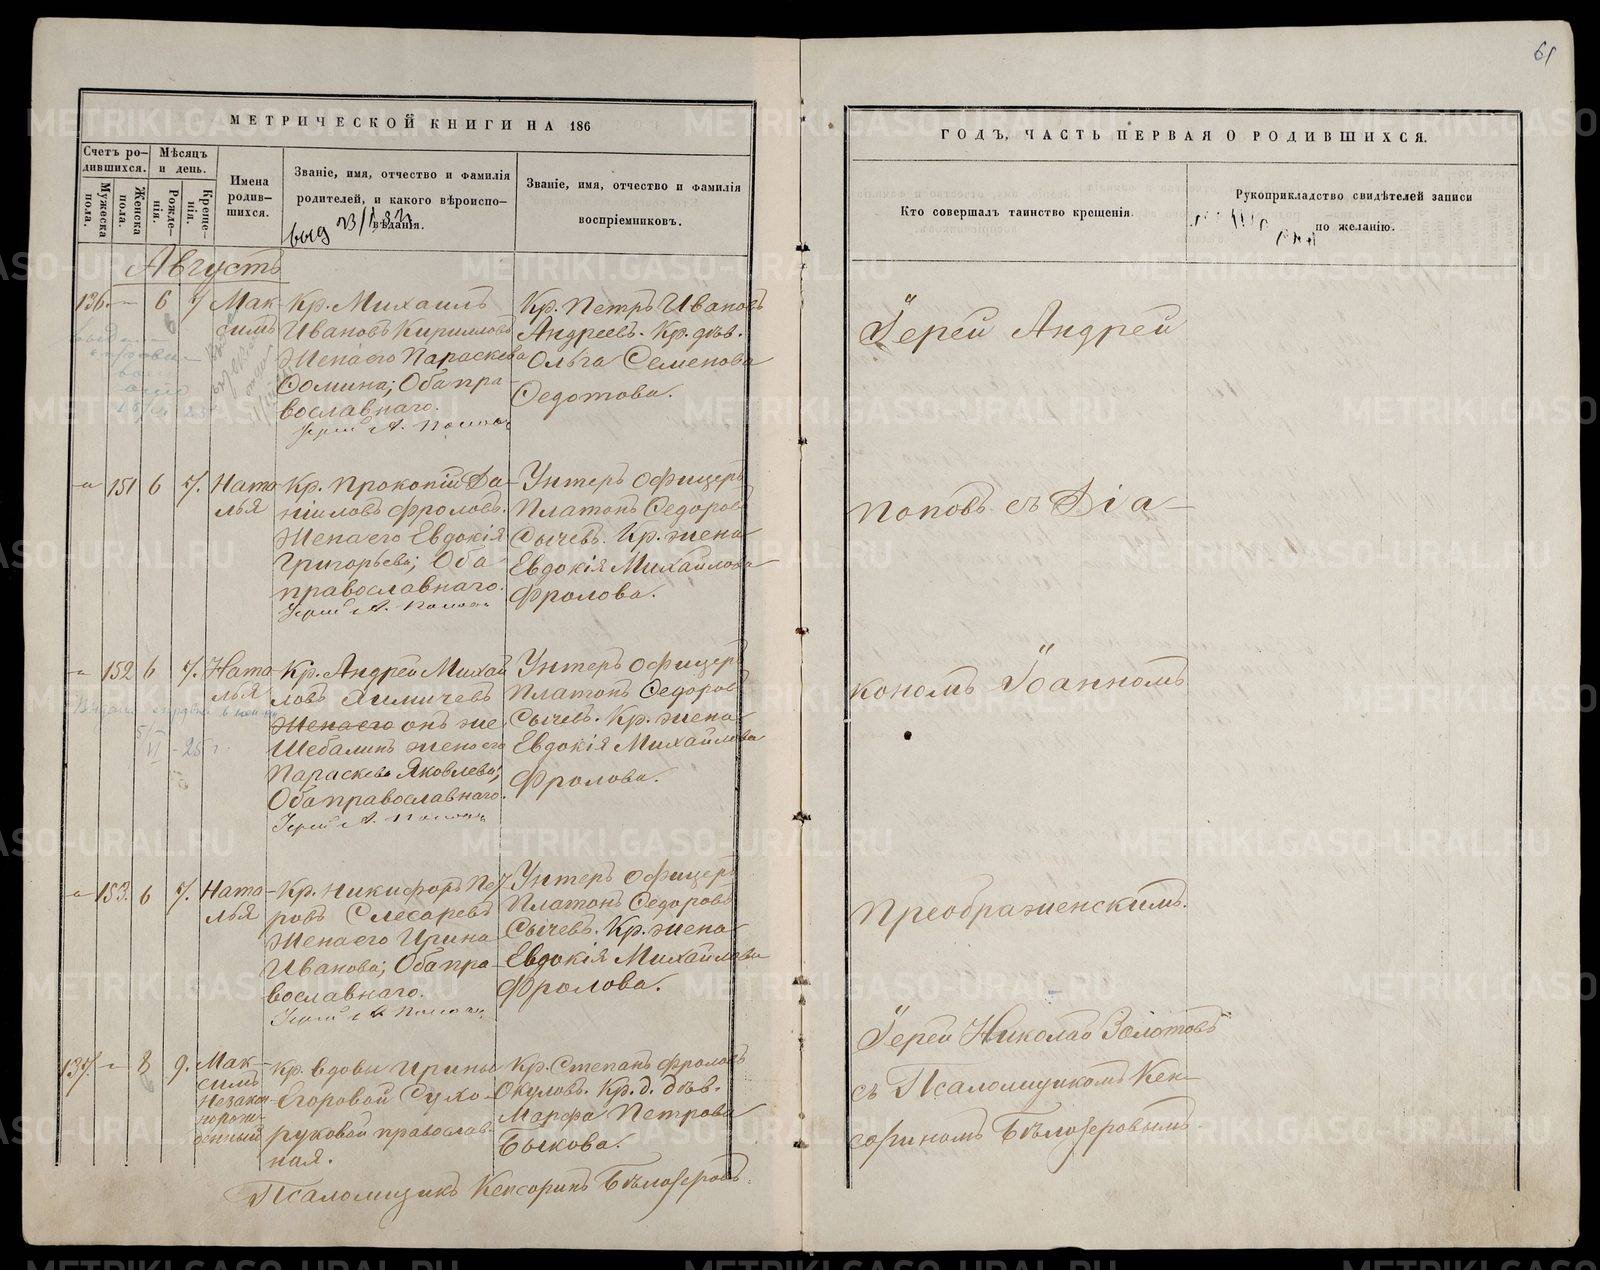 61
МЕТРИЧЕСКОЙ КНИГИ НА 186
ГОДЪ, ЧАСТЬ ПЕРВАЯ О РОДИВШИХСЯ.
Счетъ ро-
дившихся.
Мужеска
пола.
Женска
пола.
Мѣсяцъ
и день.
Рожде-
нія.
Креще-
нія.
Имена
родив-
шихся.
Званіе, имя, отчество и фамилія
родителей, и какого вѣроиспо-
вѣданія.
Званіе, имя, отчество и фамилія
воспріемниковъ.
Кто совершалъ таинство крещенія.
Рукоприкладство свидѣтелей записи
по желанію.
Августъ
136. — 6 7 Мак-
симъ
Кр. Михаилъ
Ивановъ Кирилловъ
Жена его Параскева
Фомина; Оба пра-
вославнаго.
Кр. Петръ Ивановъ
Андреевъ. Кр. дѣв.
Ольга Семенова
Федотова.
Іерей Андрей
— 151 6 7. Ната-
лья
Кр. Прокопій Да-
ниловъ Фроловъ.
Жена его Евдокія
Григорьева; Оба
православнаго.
Унтеръ Офицеръ
Платонъ Федоровъ
Сычевъ. Кр. жена
Евдокія Михайлова
Фролова.
Поповъ съ Діа-
— 152 6 7. Ната-
лья
Кр. Андрей Михай
ловъ
онъ же
Шебалинъ жена его
Параскева Яковлева;
Оба православнаго.
Унтеръ Офицеръ
Платонъ Федоровъ
Сычевъ. Кр. жена
Евдокія Михайлова
Фролова.
кономъ Іоанномъ
— 153. 6 7. Ната-
лья
Кр. Никифоръ Пет
ровъ Слесаревъ
Жена его Ирина
Иванова; Оба пра-
вославнаго.
Унтеръ Офицеръ
Платонъ Федоровъ
Сычевъ. Кр. жена
Евдокія Михайлова
Фролова.
Преображенскимъ.
137. — 8 9. Мак-
симъ
Незакон
норож-
денный
Кр. вдовы Ирины
Егоровой Сухо-
руковой православ-
ная.
Кр. Степанъ Фроловъ
Окуловъ. Кр. д. дѣв.
Марфа Петрова
Быкова.
Іерей Николай Золотовъ
съ Псаломщикомъ Кен-
сориномъ Бѣлозеровымъ.
Псаломщикъ Кенсоринъ Бѣлозеровъ.
METRIKI.GASO-URAL.RU